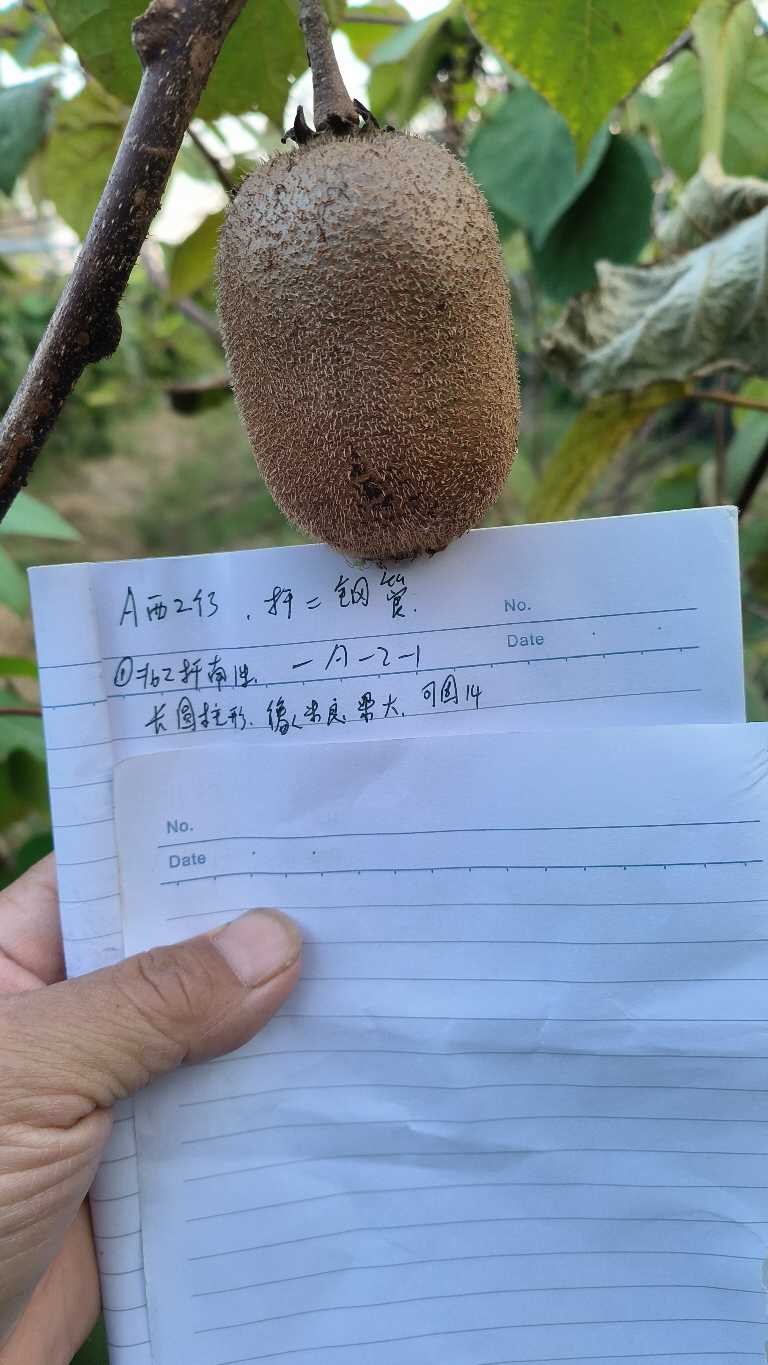 A西2行,杆=钢管.
No.
Date
①北2杆南1.-A-2-1
长圆柱形.缘人米良.果大.可固14
No.
Date